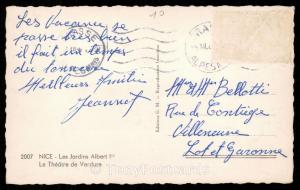 Les Vacances se
passe très bien
il fait un temps
du tonnerre
Meilleurs Amitiés
Jeannet
2007 NICE - Les Jardins Albert 1er
Le Théâtre de Verdure
Mme & Mr Bellotti
Rue de
Villeneuve
Lot et Garonne